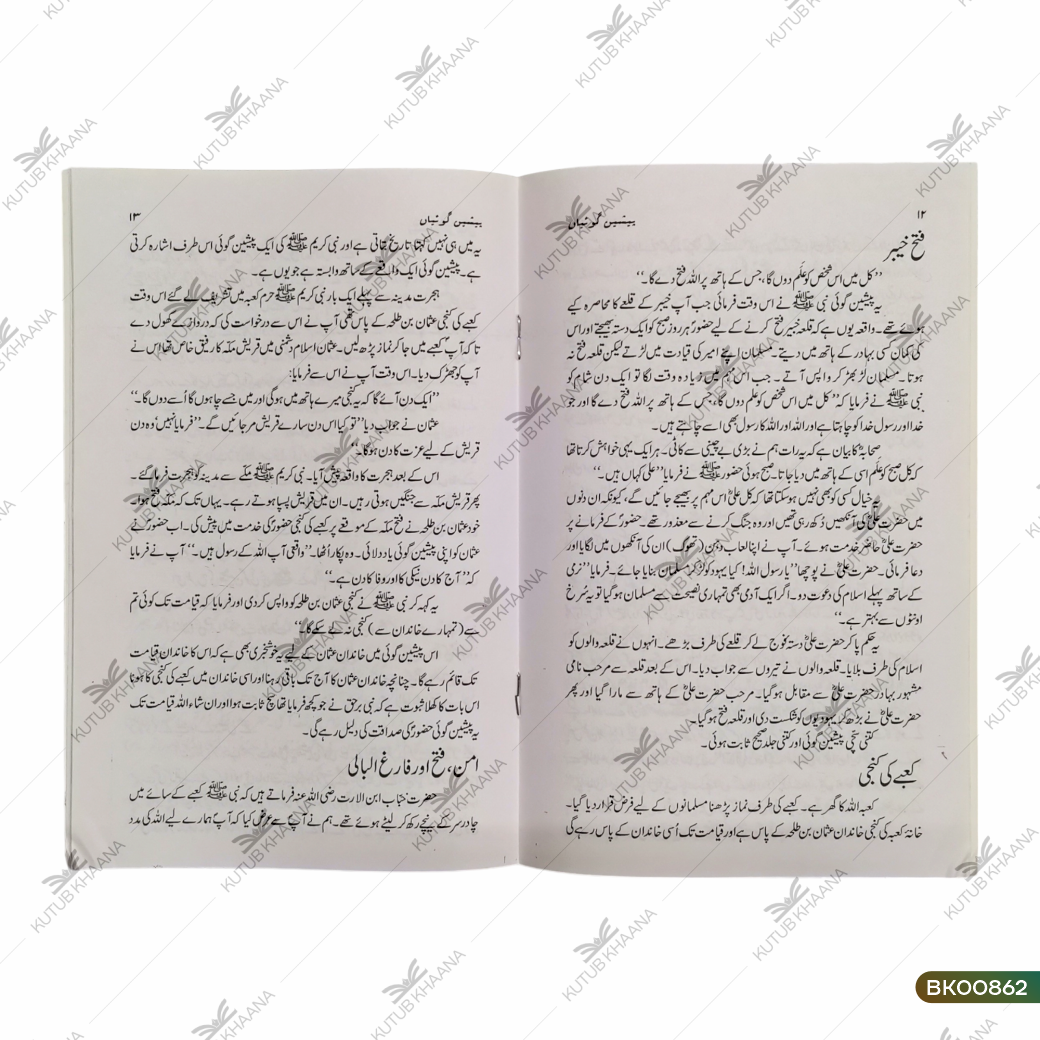 ۱۲
پیشین گوئیاں
فتح خیبر
’’کل میں اس شخص کو علَم دوں گا، جس کے ہاتھ پر اللہ فتح دے گا۔‘‘
یہ پیشین گوئی نبی ﷺ نے اس وقت فرمائی جب آپؐ خیبر کے قلعے کا محاصرہ کیے
ہوئے تھے۔ واقعہ یوں ہے کہ قلعہ خیبر فتح کرنے کے لیے حضورؐ ہر روز صبح کو ایک دستہ بھیجتے اور اس
کی کمان کسی بہادر کے ہاتھ میں دیتے۔ مسلمان اپنے امیر کی قیادت میں لڑتے لیکن قلعہ فتح نہ
ہوتا۔ مسلمان لڑ بھڑ کر واپس آتے۔ جب اس مہم میں زیادہ وقت لگا تو ایک دن شام کو
نبی ﷺ نے فرمایا کہ ’’کل میں اس شخص کو علَم دوں گا، جس کے ہاتھ پر اللہ فتح دے گا اور جو
خدا اور رسول خدا کو چاہتا ہے اور اللہ اور اللہ کا رسول بھی اسے چاہتے ہیں۔
صحابہؓ کا بیان ہے کہ یہ رات ہم نے بڑی بے چینی سے کاٹی۔ ہر ایک یہی خواہش کرتا تھا
کہ کل صبح کو علَم اسی کے ہاتھ میں دیا جاتا۔ صبح ہوئی حضور ﷺ نے فرمایا ’’علی کہاں ہیں۔‘‘
یہ خیال کسی کو بھی نہیں ہوسکتا تھا کہ کل علیؓ اس مہم پر بھیجے جائیں گے، کیونکہ ان دنوں
میں حضرت علیؓ کی آنکھیں دُکھ رہی تھیں اور وہ جنگ کرنے سے معذور تھے۔ حضورؐ کے فرمانے پر
حضرت علیؓ حاضر خدمت ہوئے۔ آپ نے اپنا لعاب دہن (تھوک) ان کی آنکھوں میں لگایا اور
دعا فرمائی۔ حضرت علیؓ نے پوچھا ’’یا رسول اللہ! کیا یہود کو لڑ کر مسلمان بنایا جائے۔ فرمایا ’’نرمی
کے ساتھ پہلے اسلام کی دعوت دو۔ اگر ایک آدمی بھی تمہاری نصیحت سے مسلمان ہوگیا تو یہ سُرخ
اونٹوں سے بہتر ہے۔‘‘
یہ حکم پا کر حضرت علیؓ دستہ فوج لے کر قلعے کی طرف بڑھے۔ انہوں نے قلعہ والوں کو
اسلام کی طرف بلایا۔ قلعہ والوں نے تیروں سے جواب دیا۔ اس کے بعد قلعہ سے مرحب نامی
مشہور بہادر حضرت علیؓ سے مقابل ہوگیا۔ مرحب حضرت علیؓ کے ہاتھ سے مارا گیا اور پھر
حضرت علیؓ نے بڑھ کر یہودیوں کو شکست دی اور قلعہ فتح ہوگیا۔
کتنی سچی پیشین گوئی اور کتنی جلد صحیح ثابت ہوئی۔
کعبے کی کنجی
کعبہ اللہ کا گھر ہے۔ کعبے کی طرف نماز پڑھنا مسلمانوں کے لیے فرض قرار دیا گیا۔
خانۂ کعبہ کی کنجی خاندان عثمان بن طلحہ کے پاس ہے اور قیامت تک اُسی خاندان کے پاس رہے گی
پیشین گوئیاں
۱۳
یہ میں ہی نہیں کہتا تاریخ بتاتی ہے اور نبی کریم ﷺ کی ایک پیشین گوئی اس طرف اشارہ کرتی
ہے۔ پیشین گوئی ایک واقعے کے ساتھ وابستہ ہے جو یوں ہے۔
ہجرت مدینہ سے پہلے ایک بار نبی کریم ﷺ حرم کعبہ میں تشریف لے گئے اس وقت
کعبے کی کنجی عثمان بن طلحہ کے پاس تھی آپؐ نے اس سے درخواست کی کہ دروازے کھول دے
تاکہ آپؐ کعبے میں جا کر نماز پڑھ لیں۔ عثمان اسلام دشمنی میں قریش مکّہ کا رفیق خاص تھا اس نے
آپؐ کو جھڑک دیا۔ اس وقت آپؐ نے اس سے فرمایا:
’’ایک دن آئے گا کہ یہ کنجی میرے ہاتھ میں ہوگی اور میں جسے چاہوں گا اُسے دوں گا۔‘‘
عثمان نے جواب دیا ’’تو کیا اس دن سارے قریش مر جائیں گے۔‘‘ فرمایا نہیں‘ وہ دن
قریش کے لیے عزت کا دن ہوگا۔‘‘
اس کے بعد ہجرت کا واقعہ پیش آیا۔ نبی کریم ﷺ مکّے سے مدینہ کو ہجرت فرما گئے۔
پھر قریش مکّہ سے جنگیں ہوتی رہیں۔ ان میں قریش پسپا ہوتے رہے۔ یہاں تک کہ مکّہ فتح ہوا۔
خود عثمان بن طلحہ نے فتح مکّہ کے موقعے پر کعبے کی کنجی حضورؐ کی خدمت میں پیش کی۔ اب حضورؐ نے
عثمان کو اپنی پیشین گوئی یاد دلائی۔ وہ پکار اُٹھا۔ ’’واقعی آپؐ اللہ کے رسول ہیں۔‘‘ آپؐ نے فرمایا
کہ ’’آج کا دن نیکی کا اور وفا کا دن ہے۔‘‘
یہ کہہ کر نبی ﷺ نے کنجی عثمان بن طلحہ کو واپس کردی اور فرمایا کہ قیامت تک کوئی تم
سے (تمہارے خاندان سے) کنجی نہ لے سکے گا۔‘‘
اس پیشین گوئی میں خاندان عثمان کے لیے یہ خوشخبری بھی ہے کہ اس کا خاندان قیامت
تک قائم رہے گا۔ چنانچہ خاندان عثمان کا آج تک باقی رہنا اور اسی خاندان میں کعبے کی کنجی کا ہونا
اس بات کا کھلا ثبوت ہے کہ نبی برحق نے جو کچھ فرمایا تھا سچ ثابت ہوا اور ان شاء اللہ قیامت تک
یہ پیشین گوئی حضورؐ کی صداقت کی دلیل رہے گی۔
امن، فتح اور فارغ البالی
حضرت خباب ابن الارت رضی اللہ عنہ فرماتے ہیں کہ نبی ﷺ کعبے کے سائے میں
چادر سر کے نیچے رکھ کر لیٹے ہوئے تھے۔ ہم نے آپؐ سے عرض کیا کہ آپؐ ہمارے لیے اللہ کی مدد
KUTUB KHAANA
BK00862